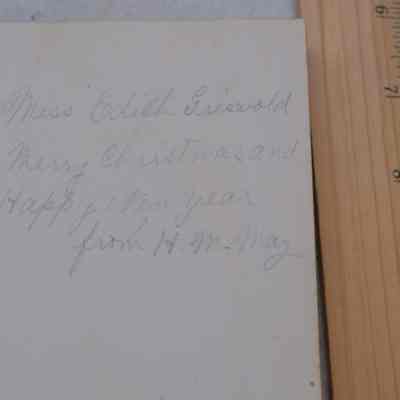 Miss Edith Griswold
Merry Christmas and
Happy New Year
from H. M. May
6
7
8